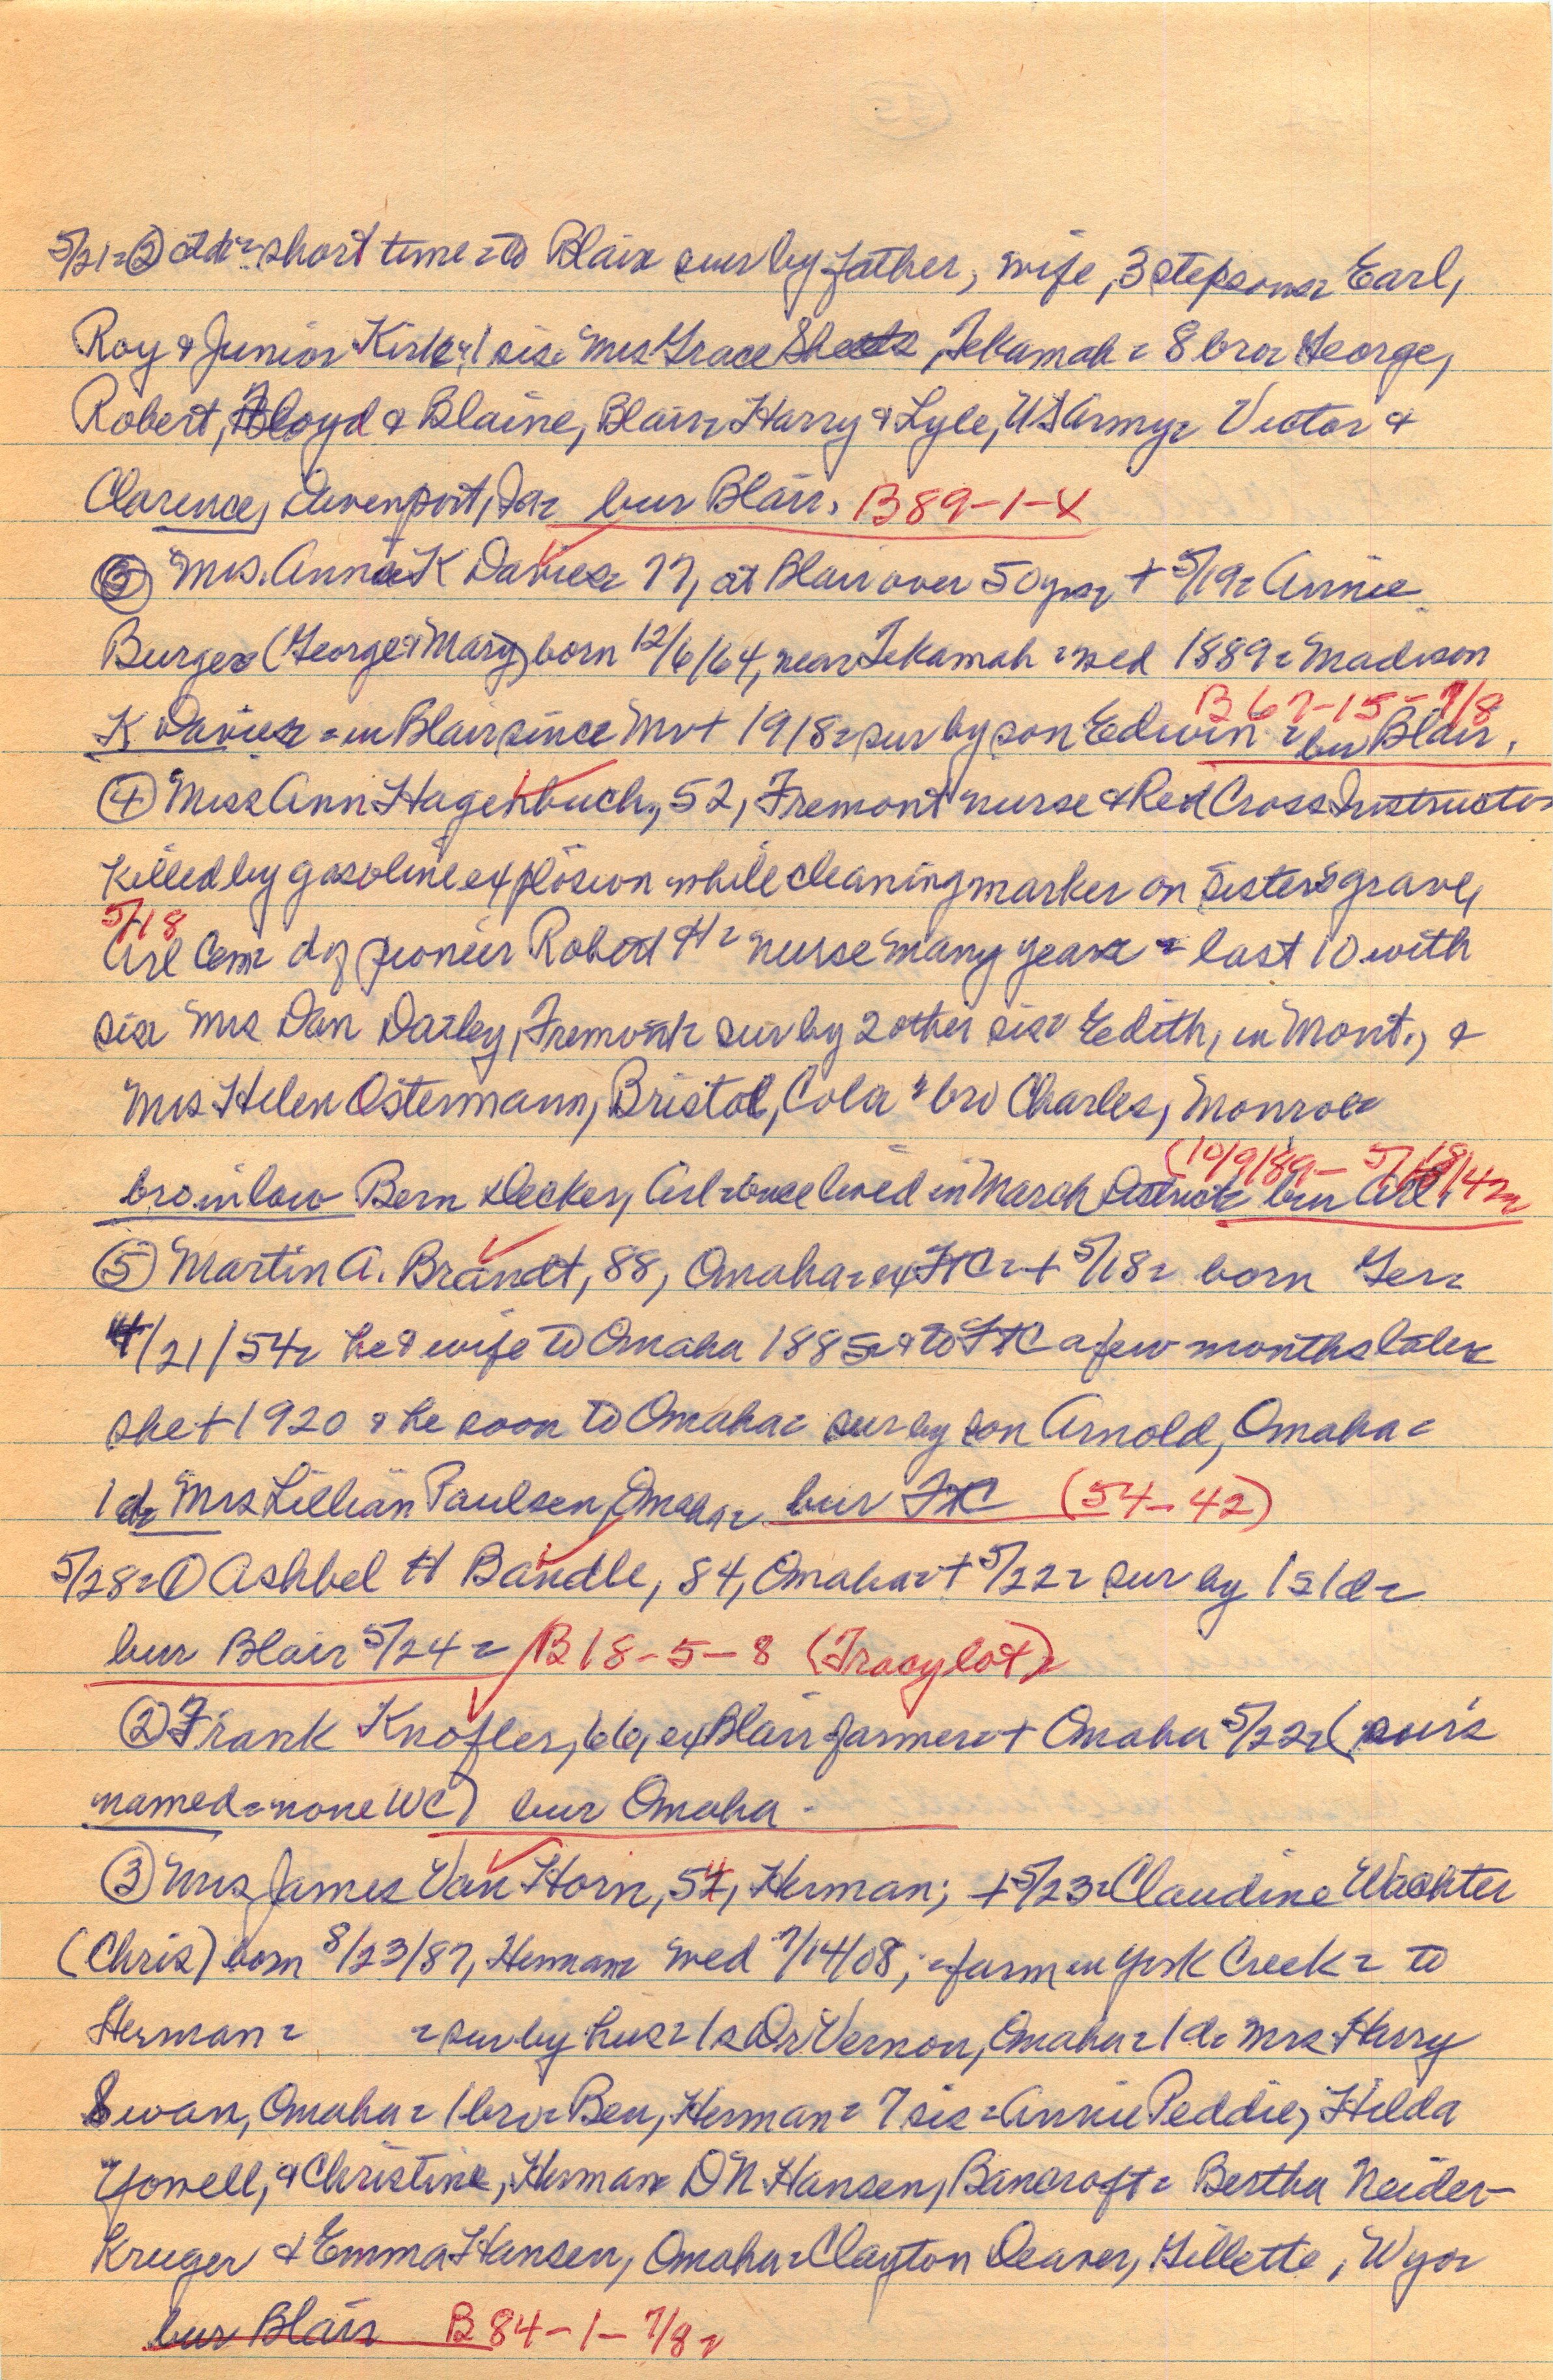 5/21 = ② ctd = short time = to Blair sur by father, wife, 3 stepsons = Earl,
Roy & Junior Kirk = 1 sis = Mrs Grace Sheets, Tekamah = 8 bro = George,
Robert, Floyd & Blaine, Blair = Harry & Lyle, US Army = Victor &
Clarence, Davenport, Ia = bur Blair. B89-1-X
③ Mrs. Anna K Davies = 77, at Blair over 50 yrs = + 5/19 = Annie
Burger (George & Mary) born 12/6/64, near Tekamah = wed 1889 = Madison
B 67-15-7/8
K Davies = in Blair since Mr + 1918 = sur by son Edwin = bur Blair.
④ Miss Ann Hagenbuch, 52, Fremont nurse & Red Cross Instructor
killed by gasoline explosion while cleaning marker on sister's grave,
5/18
Arl Cem = d of pioneer Robert H = nurse many years = last 10 with
sis = Mrs Dan Dailey, Fremont = sur by 2 other sis = Edith, in Mont., &
Mrs Helen Ostermann, Bristol, Colo = bro Charles, Monroe =
(10/9/89 - 5/18/42 =
bro in law Bern Decker, Arl = once lived in Marsh District = bur Arl.
⑤ Martin A. Brandt, 88, Omaha = ex FtC = + 5/18 = born Ger =
4/21/54 = he & wife to Omaha 1885 = & to FtC a few months later =
she + 1920 & he soon to Omaha = sur by son Arnold, Omaha =
1 d = Mrs Lillian Paulsen, Omaha = bur FtC (54-42)
5/28 = ① Ashbel H Bandle, 84, Omaha = + 5/22 = sur by 1 s 1 d =
bur Blair 5/24 = B18-5-8 (Tracy lot) =
② Frank Knofler, 66, ex Blair farmer = + Omaha 5/22 = (sur's
named = none WC) bur Omaha -
③ Mrs James Van Horn, 54, Herman; + 5/23 = Claudine Wachter
(Chris) born 8/23/87, Herman = wed 7/14/08; = farm in York Creek = to
Herman = = sur by hus = 1 s Dr Vernon, Omaha = 1 d = Mrs Harry
Swan, Omaha = 1 bro = Ben, Herman = 7 sis = Annie Peddie, Hilda
Yowell, & Christine, Herman = DN Hansen, Bancroft = Bertha Neider-
Kruger & Emma Hansen, Omaha = Clayton Deaver, Gillette, Wyo =
bur Blair B84-1-7/8 =